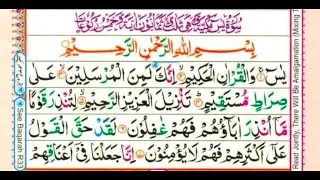 بِسْمِ اللهِ الرَّحْمٰنِ الرَّحِيْمِ
يٰسٓ وَالْقُرْاٰنِ الْحَكِيْمِ اِنَّكَ لَمِنَ الْمُرْسَلِيْنَ عَلٰى
صِرَاطٍ مُّسْتَقِيْمٍ تَنْزِيْلَ الْعَزِيْزِ الرَّحِيْمِ لِتُنْذِرَ قَوْمًا
مَّا اُنْذِرَ اٰبَآؤُهُمْ فَهُمْ غٰفِلُوْنَ لَقَدْ حَقَّ الْقَوْلُ
عَلٰٓى اَكْثَرِهِمْ فَهُمْ لَا يُؤْمِنُوْنَ اِنَّا جَعَلْنَا فِيْٓ اَعْنَاقِهِمْ
See Baqarah R33
Read Jointly There Will Be Arrangement Mixing